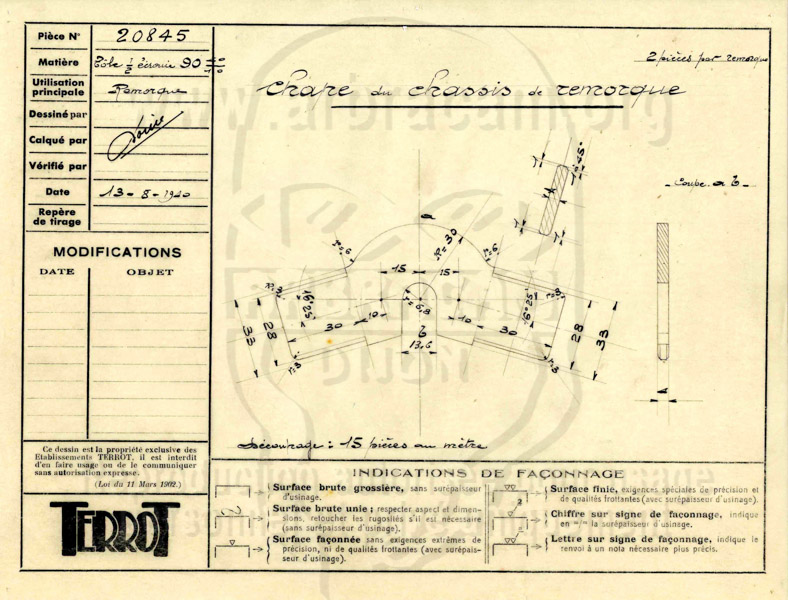 Pièce N° 20845
Matière Tôle ½ écrouie 90
Utilisation principale Remorque
Dessiné par
Calqué par
Vérifié par
Date 13-8-1940
Repère de tirage
MODIFICATIONS
DATE OBJET
Ce dessin est la propriété exclusive des
Etablissements TERROT, il est interdit
d'en faire usage ou de le communiquer
sans autorisation expresse.
(Loi du 11 Mars 1902.)
TERROT
2 pièces par remorque
Chape du chassis de remorque
Coupe a b
a
R=30
r=6
r=6
15
15
r=6,8
r=3
r=3
16°25'
16°25'
30
10
10
30
b
13,6
28
33
28
33
r=3
r=3
45°
Découpage : 15 pièces au mètre
INDICATIONS DE FAÇONNAGE
Surface brute grossière, sans surépaisseur
d'usinage.
Surface brute unie ; respecter aspect et dimen-
sions, retoucher les rugosités s'il est nécessaire
(sans surépaisseur d'usinage).
Surface façonnée sans exigences extrêmes de
précision, ni de qualités frottantes (avec surépais-
seur d'usinage).
Surface finie, exigences spéciales de précision et
de qualités frottantes (avec surépaisseur d'usinage).
Chiffre sur signe de façonnage, indique
en m/m la surépaisseur d'usinage.
Lettre sur signe de façonnage, indique le
renvoi à un nota nécessaire plus précis.